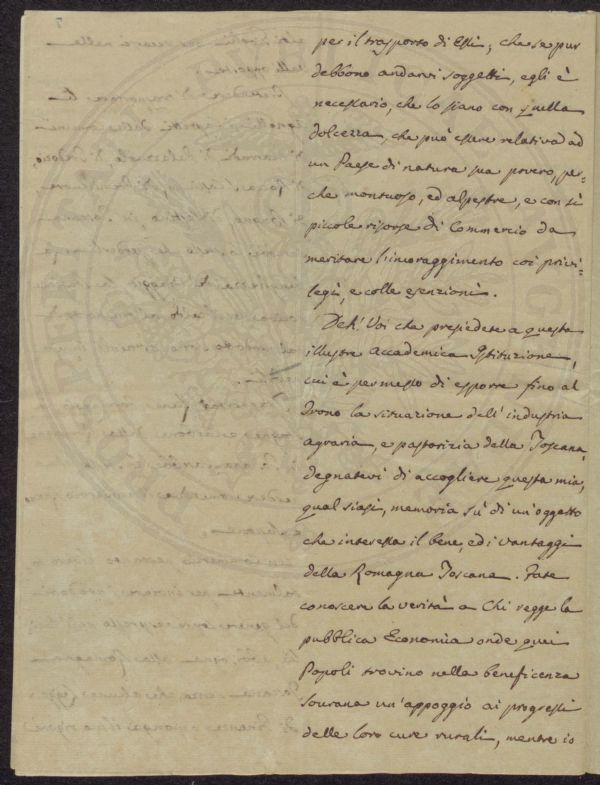 per il trasporto di Essi; che se pur
debbono andarvi soggetti, egli è
necessario, che lo siano con quella
dolcezza, che può essere relativa ad
un Paese di natura sua povero, per-
che montuoso, ed alpestre, e con sì
piccole risorse di Commercio da
meritare l'incoraggimento coi privi-
legi, e colle esenzioni.
Deh! Voi che presiedete a questa
illustre Accademica Istituzione,
cui è permesso di esporre fino al
Trono la situazione dell'industria
agraria, e pastorizia della Toscana,
degnatevi di accogliere questa mia,
qual siasi, memoria sù di un'oggetto
che interessa il bene, ed i vantaggi
della Romagna Toscana. Fate
conoscere la verità a Chi regge la
pubblica Economia onde quei
Popoli trovino nella beneficenza
Sovrana un'appoggio ai progressi
delle loro cure rurali, mentre io